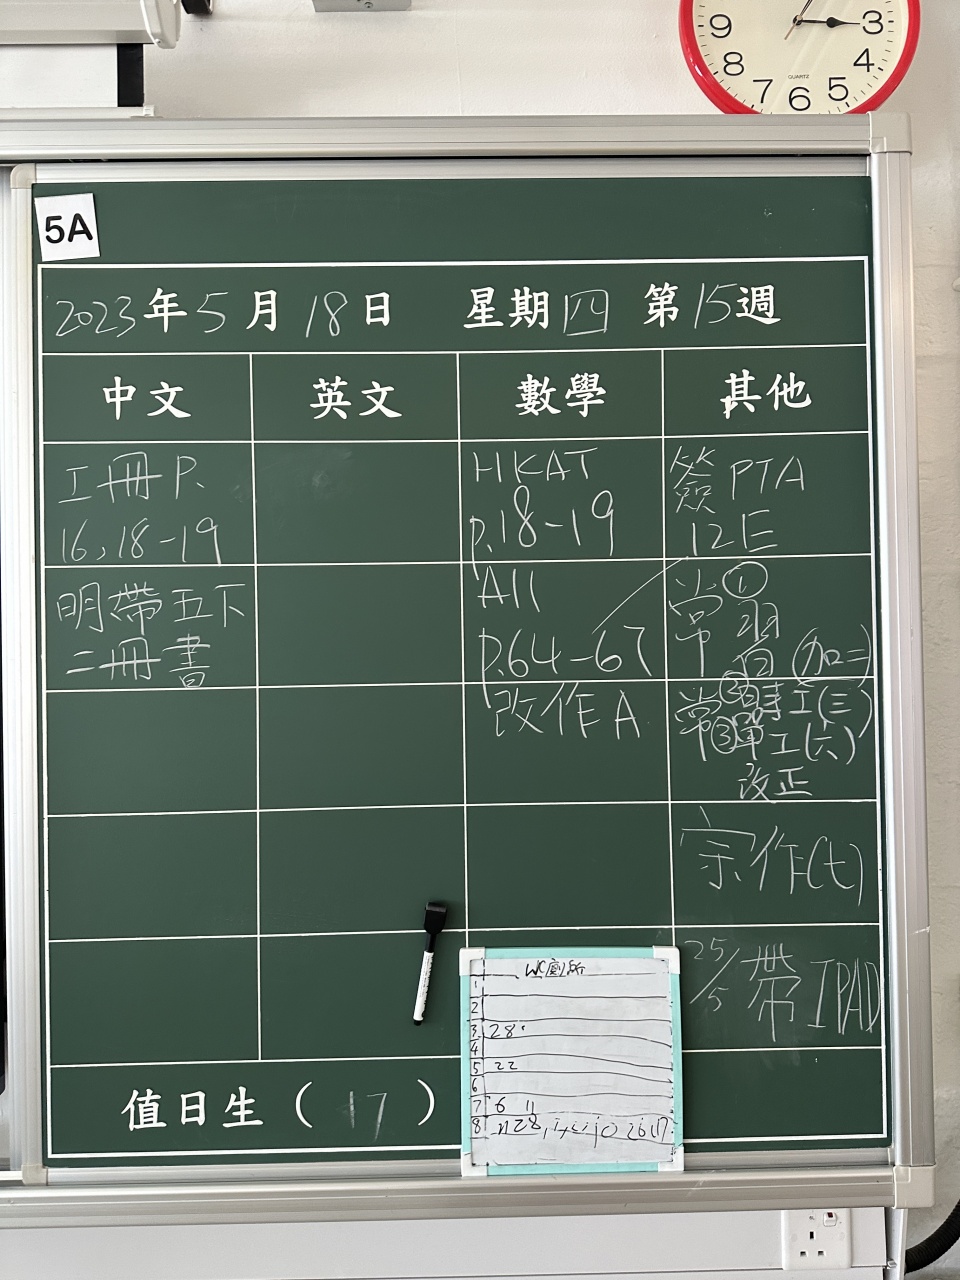 9
3
8
4
7
6
5
QUARTZ
5A
2023年5月18日 星期四 第15週
中文 英文 數學 其他
工冊P.
16,18-19
明帶五下
二冊書
HKAT
P.18-19
A11
P.64-67
改作A
簽PTA
12E
常①
習
(加二)
常②
③單工(六)
改正
作(七)
25/5 帶IPAD
值日生(17)
WC廁所
1
2
3 28
4
5 22
6
7 6 11
8